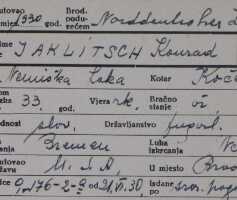 utovao 1930. god. Brod. poduzećem Norddeutscher L
me JAKLITSCH Konrad
Nemška Loka Kotar Koče
om zka 33. god. Vjera rk. Bračno stanje ož.
dnost slov. Državljanstvo jugosl.
a Bremen Luka iskrcanja Ne
utovao žavu U.S.A. U mjesto Broo
ice 9.176-2-9 od 21.VI.30. Izdane po sres. pogl